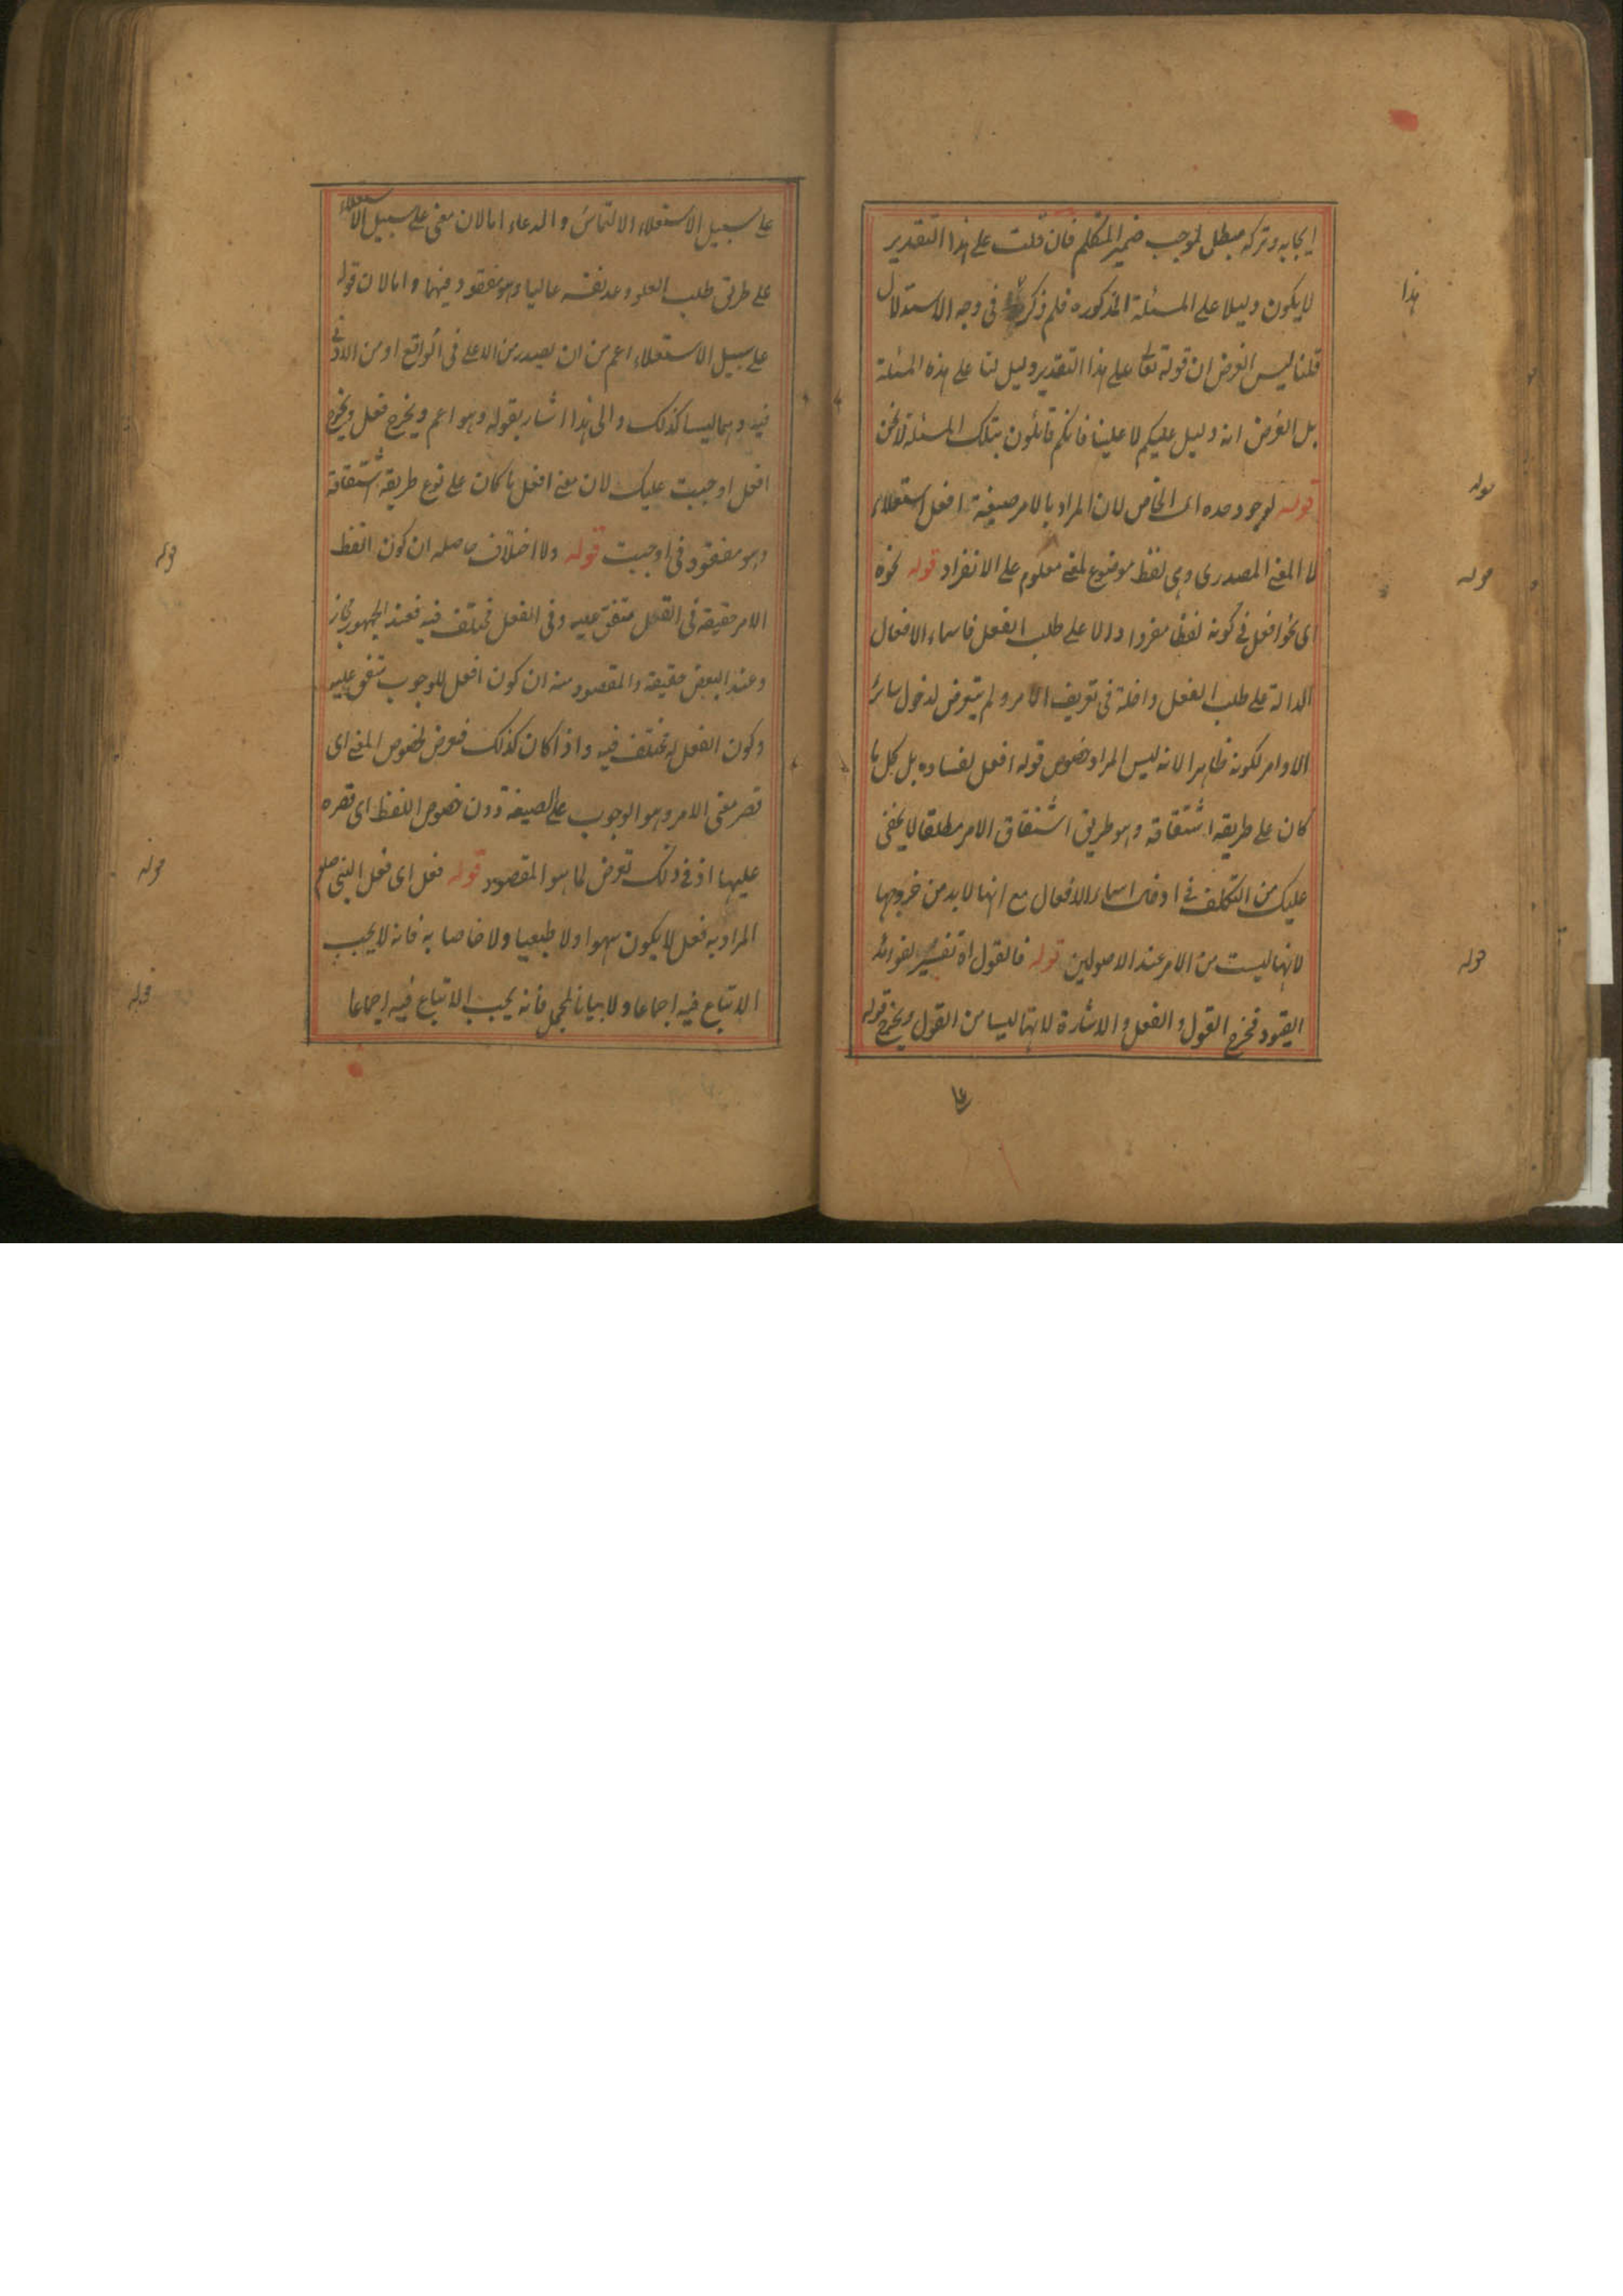 ايجابه وتركه مبطل لموجب ضمير المتكلم فان قلت على هذا التقدير
لا يكون دليلا على المسئلة المذكوره فلم ذكر في وجه الاستدلال
قلنا ليس الغرض ان قوله تعالى على هذا التقدير دليل لنا على هذه المسئلة
بل الغرض انه دليل عليكم لا علينا فانكم قائلون بتلك المسئلة لا نحن
قوله لوجود حده اى الخاص لان المراد بالامر صيغة افعل استعلاء
لا المعنى المصدرى وهى لفظ موضوع لمعنى معلوم على الانفراد قوله نحوه
اى نحو افعل في كونه لفظا مفردا دالا على طلب الفعل فاسماء الافعال
الدالة على طلب الفعل داخلة في تعريف الامر ولم يتعرض لدخول سائر
الاوامر لكونه ظاهرا لانه ليس المراد خصوص قوله افعل لفساده بل كل ما
كان على طريقه اشتقاقه وهو طريق اشتقاق الامر مطلقا لا يخفى
عليك من التكلف في ادخال اسماء الافعال مع انها لا بد من خروجها
لانها ليست من الامر عند الاصولين قوله فالقول اه تفسير لفوائد
القيود فخرج القول و الفعل والاشارة لانهما ليسا من القول ويخرج قوله
هذا
قوله
قوله
قوله
على سبيل الاستعلاء الالتماس والدعاء اما لان معنى على سبيل الاستعلاء
على طريق طلب العلو وعد نفسه عاليا وهو مفقود فيهما واما لان قوله
على سبيل الاستعلاء اعم من ان يصدر من الاعلى في الواقع او من الادنى
فيه وهما ليسا كذلك والى هذا اشار بقوله وهو اعم ويخرج فعل ويخرج
افعل اوجبت عليك لان معنى افعل ما كان على نوع طريقة اشتقاقه
وهو مفقود في اوجبت قوله ولا اختلاف حاصله ان كون لفظ
الامر حقيقة في القول متفق عليه وفى الفعل مختلف فيه فعند الجمهور مجاز
وعند البعض حقيقة والمقصود منه ان كون افعل للوجوب متفق عليه
وكون الفعل له مختلف فيه واذا كان كذلك فعرض لخصوص المعنى اى
قصر معنى الامر وهو الوجوب على الصيغة دون خصوص اللفظ اى قصره
عليها اذ في ذلك تعرض لما هو المقصود قوله فعل اى فعل النبى صلعم
المراد به فعل لا يكون سهوا ولا طبعيا ولا خاصا به فانه لا يجب
الاتباع فيه اجماعا ولا بيانا لمجمل فانه يجب الاتباع فيه اجماعا
قوله
قوله
قوله